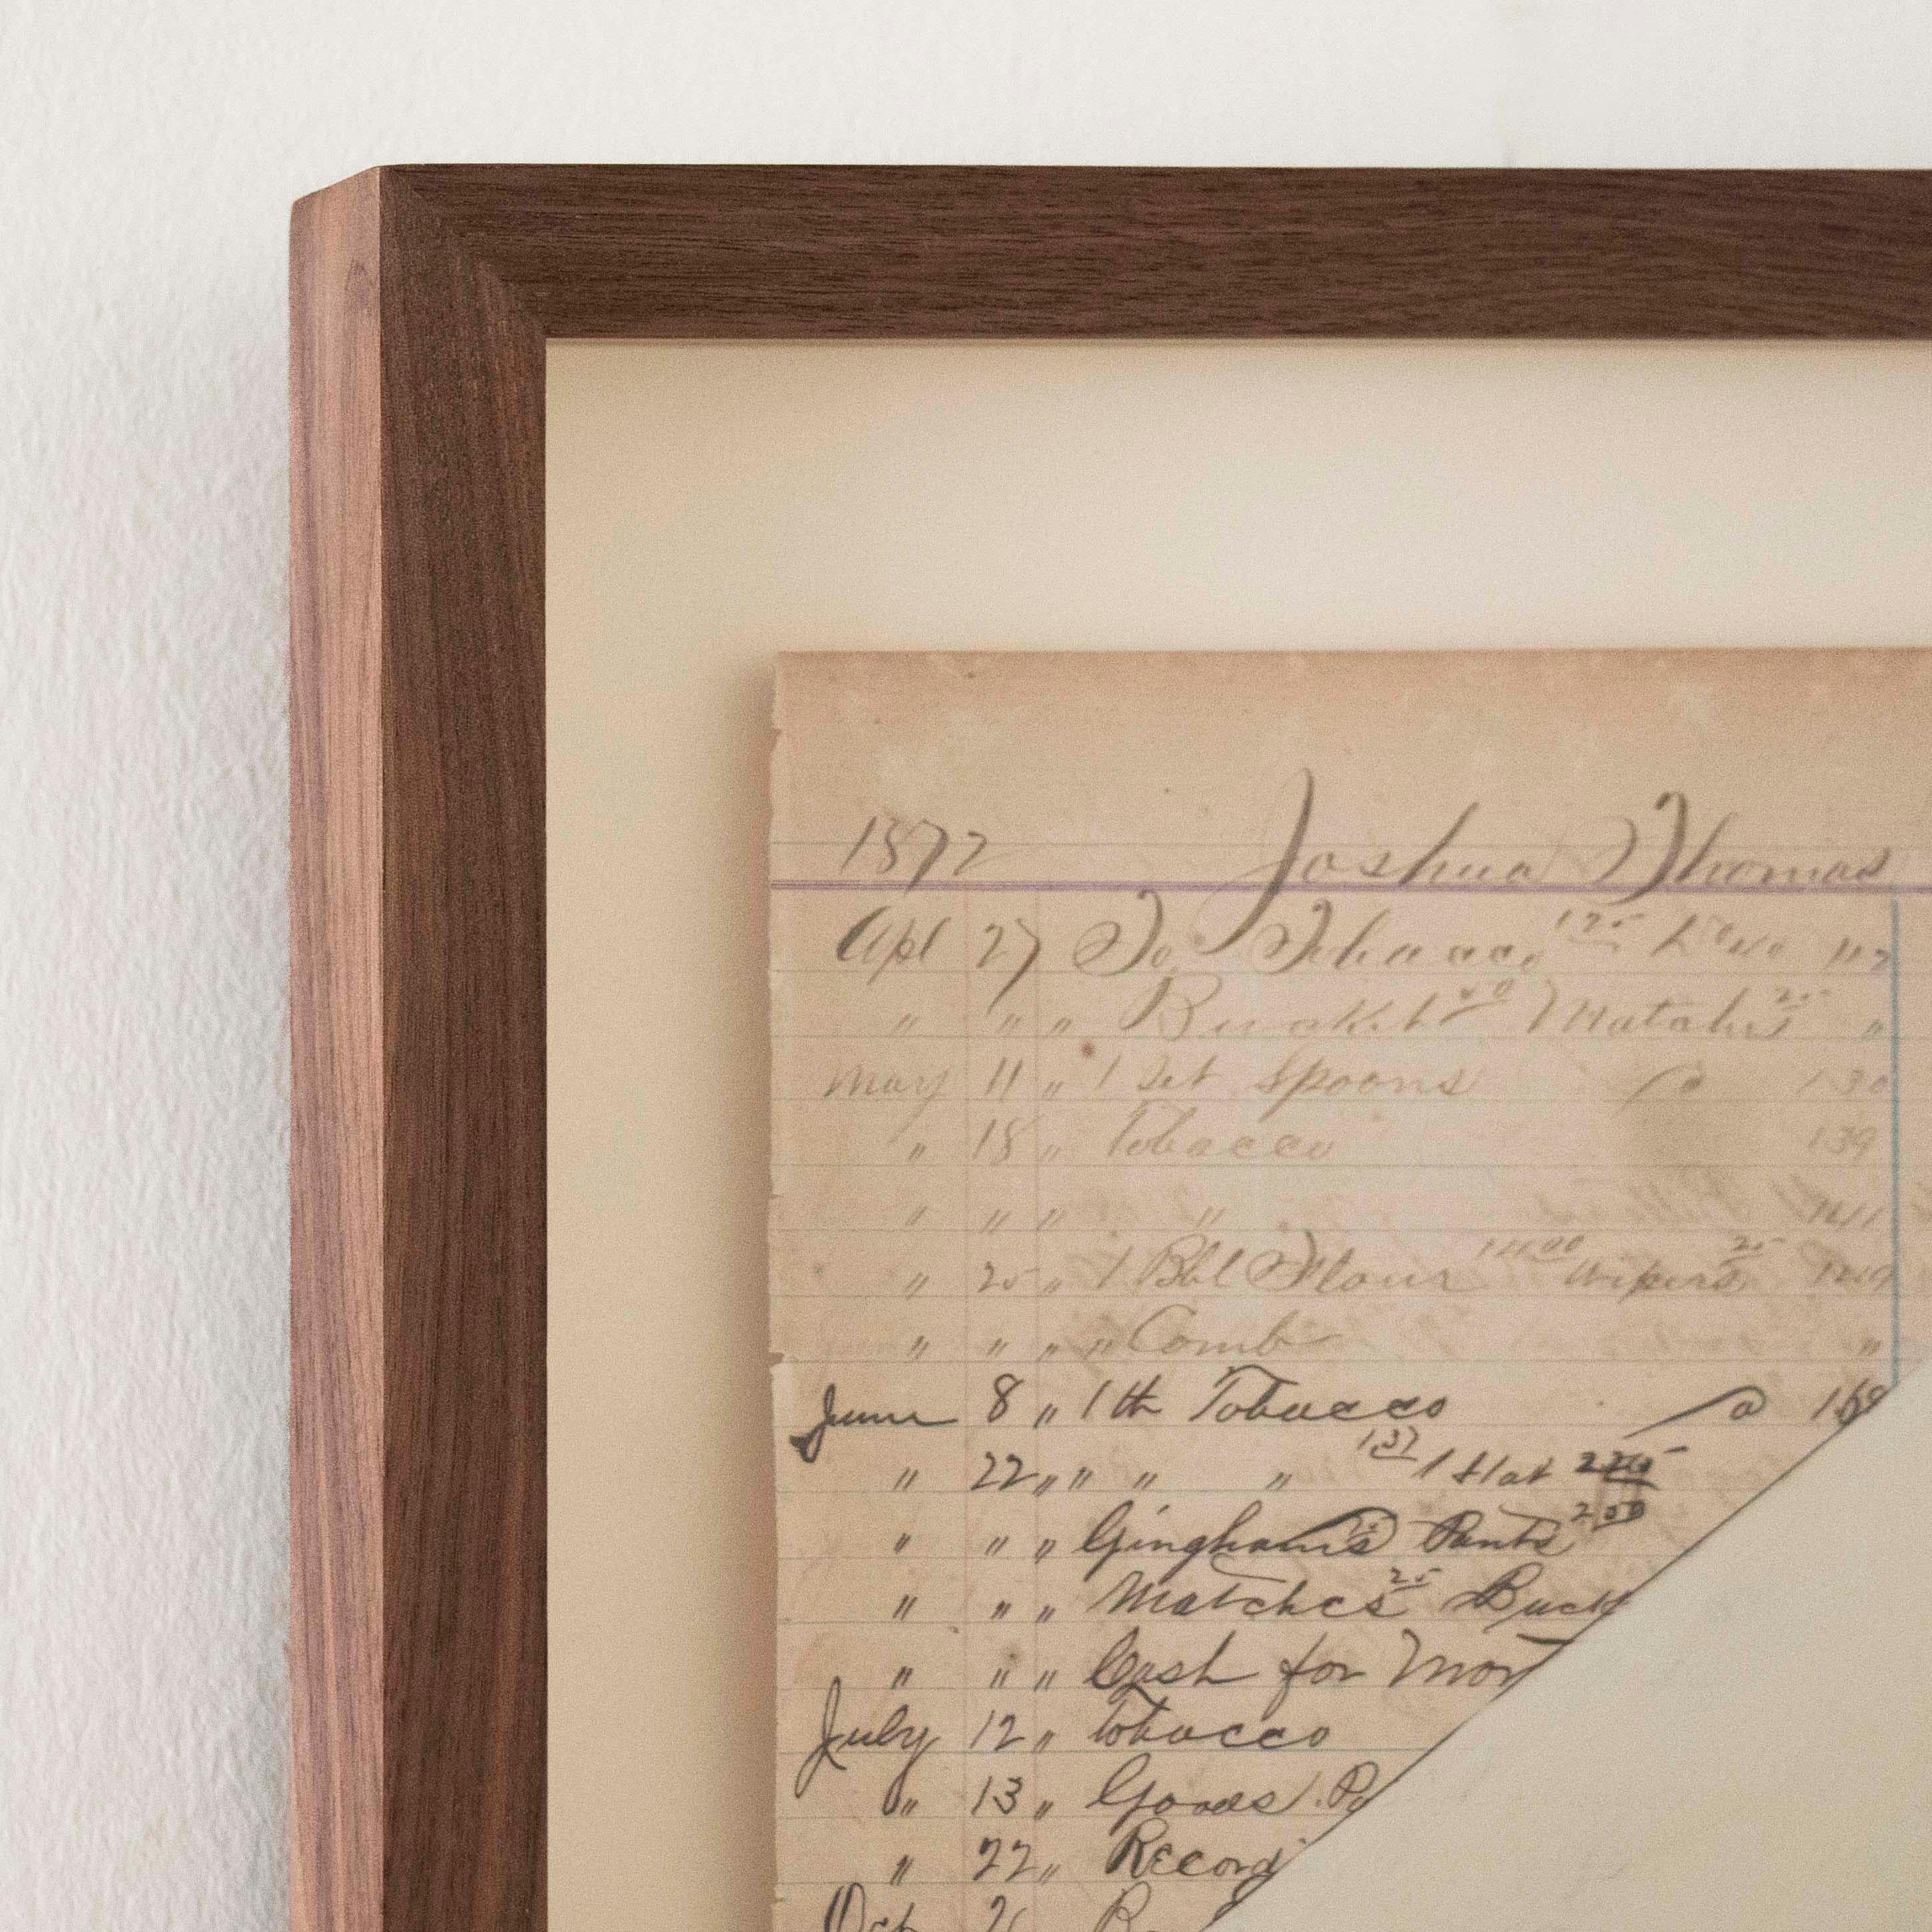 1872 Joshua Thomas
Apl 27 To Tobacco 125 112
" " " Bucket Matches 25 "
May 11 " 1 Set Spoons 130
" 18 " Tobacco 139
" " " " 141
" 25 " 1 Bbl Flour 14 00 Wipers 25
" " " " Comb "
June 8 " 1 lb Tobacco 169
" 22 " " " " 1 Hat
" " " Ginghams Pants 2 50
" " " Matches 25 Buck
" " " Cash for Mor
July 12 " Tobacco
" 13 " Goods
" 22 " Record
Oct